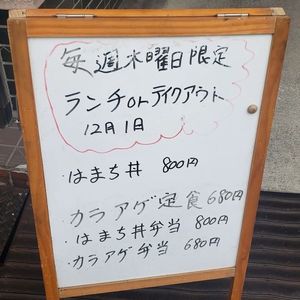 毎週木曜日限定
ランチorテイクアウト
12月1日
・はまち丼 800円
カラアゲ定食680円
・はまち丼弁当 800円
・カラアゲ弁当 680円